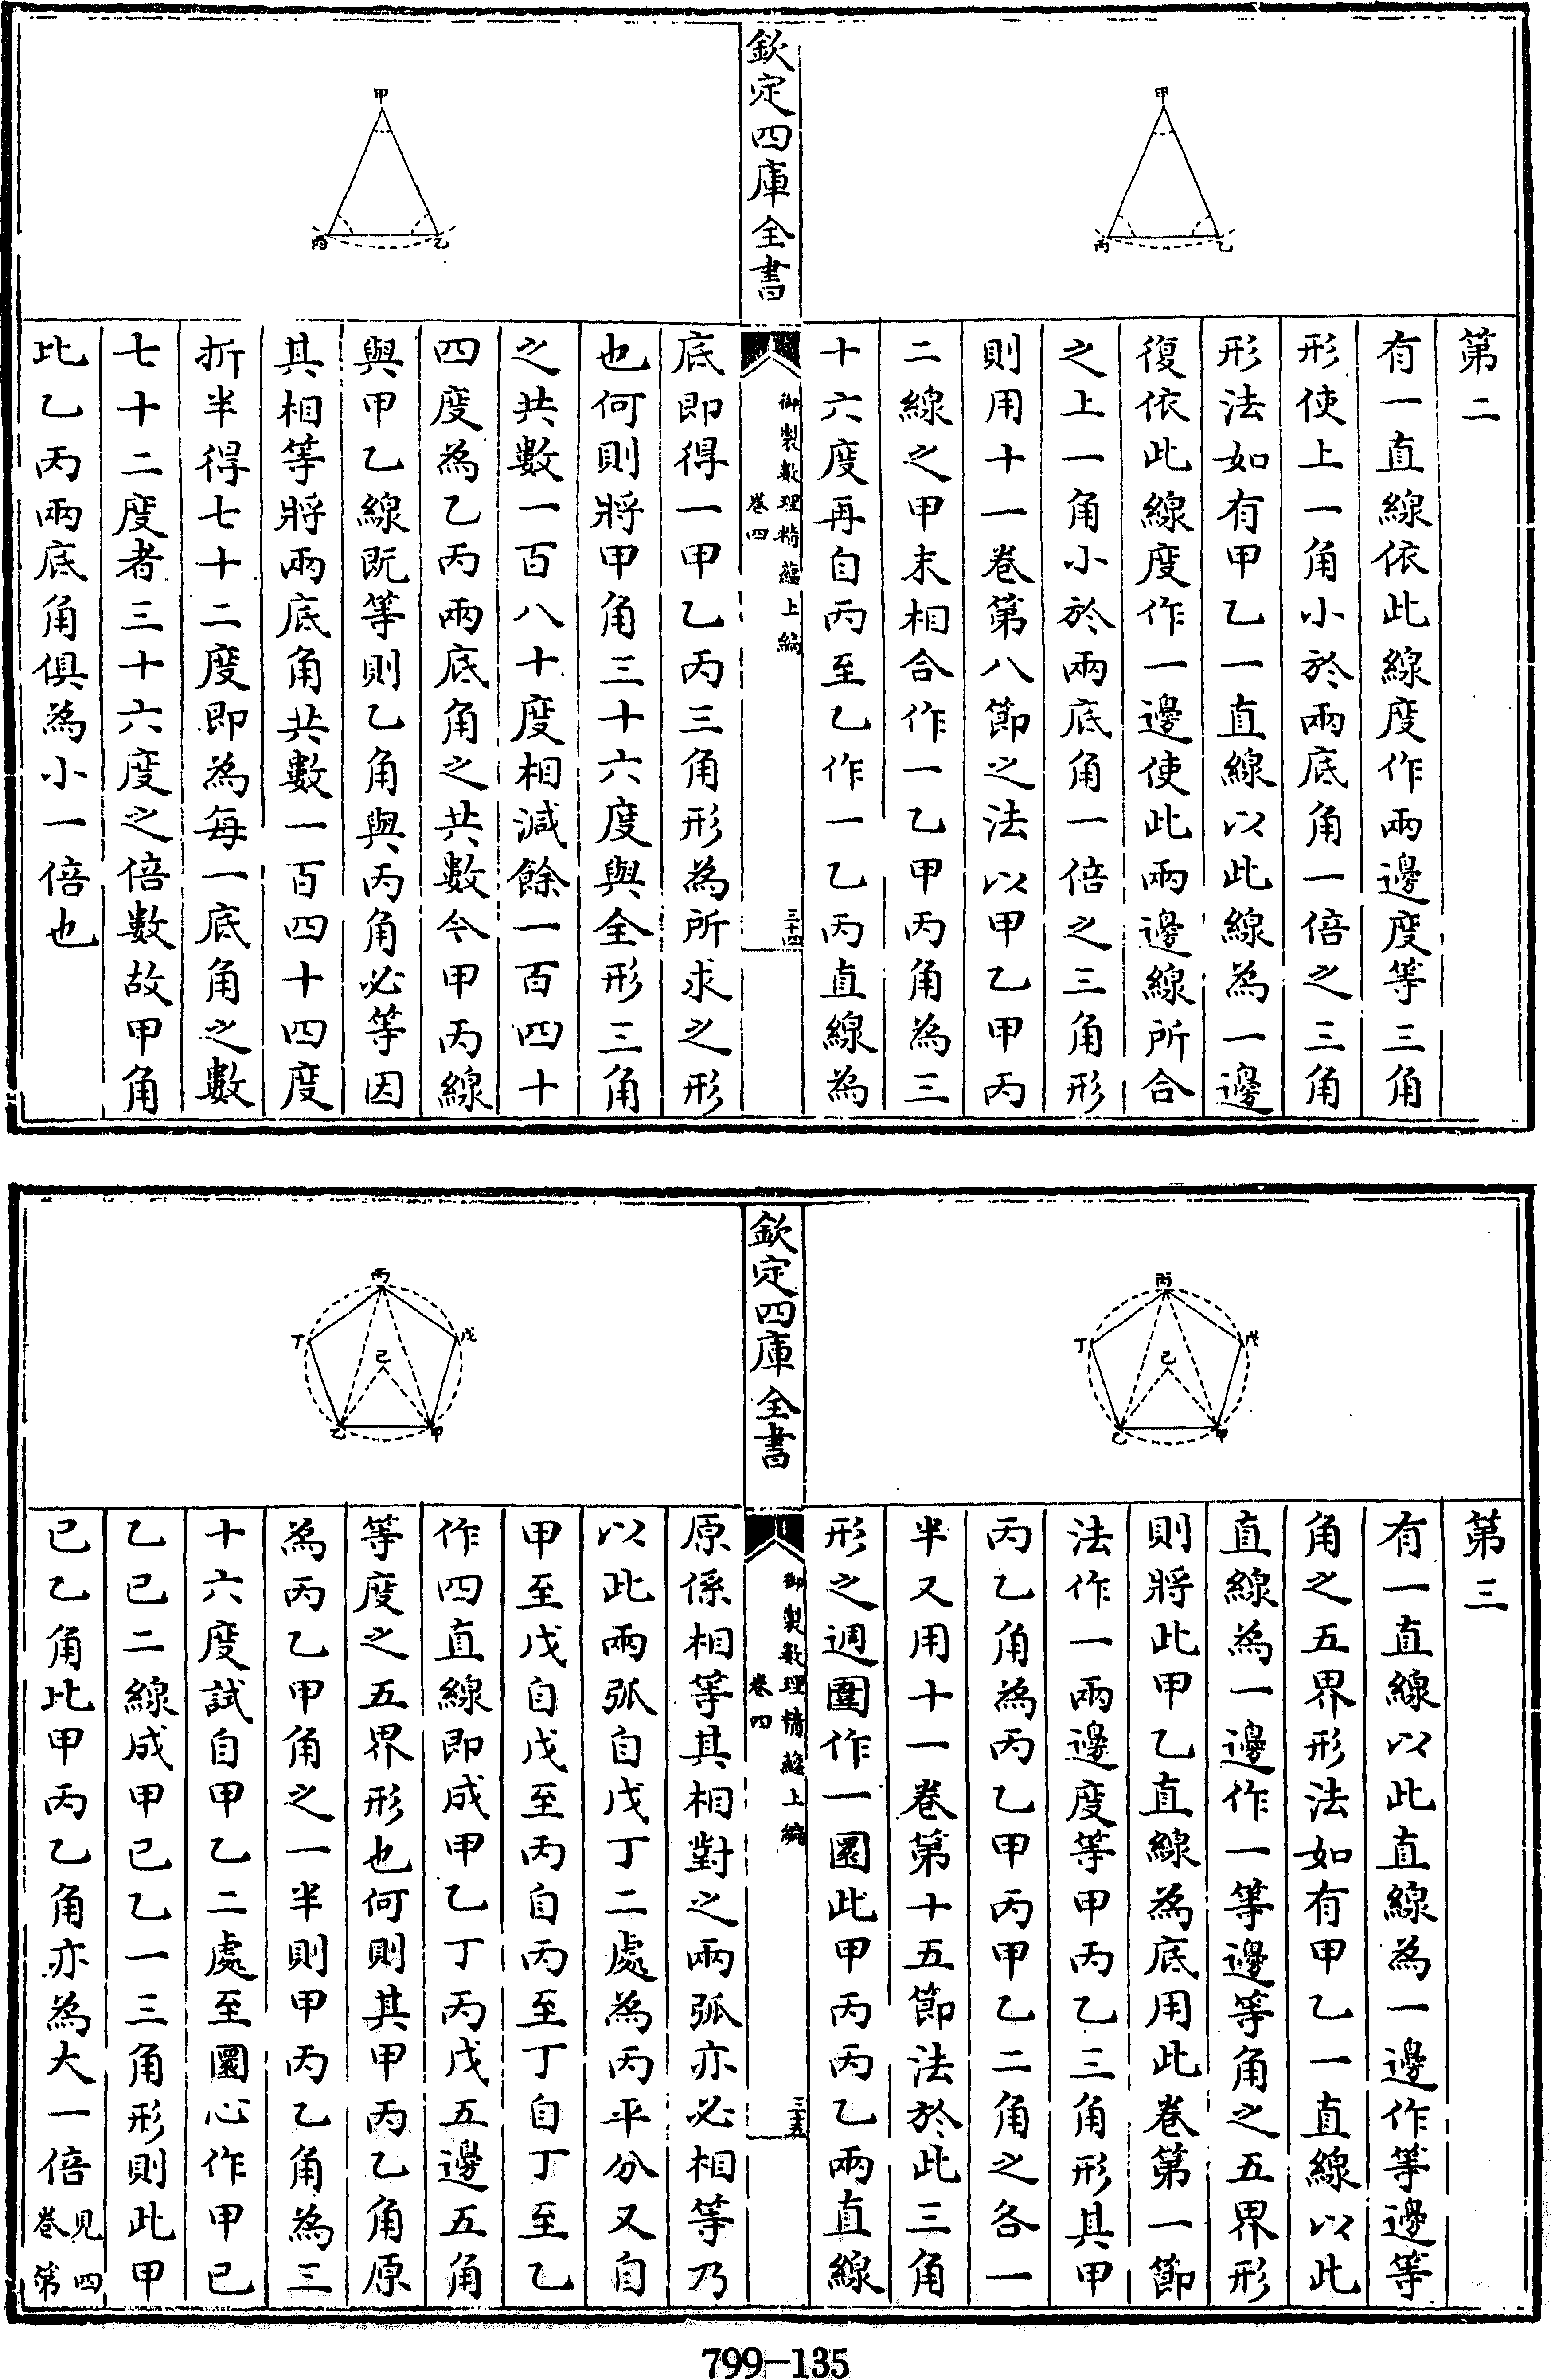 第二
有一直線依此線度作兩邊度等三角
形使上一角小於兩底角一倍之三角
形法如有甲乙一直線以此線為一邊
復依此線度作一邊使此兩邊線所合
之上一角小於兩底角一倍之三角形
則用十一卷第八節之法以甲乙甲丙
二線之甲末相合作一乙甲丙角為三
十六度再自丙至乙作一乙丙直線為
甲
丙
乙
欽定四庫全書
御製數理精蘊上編
卷四
三十四
底即得一甲乙丙三角形為所求之形
也何則將甲角三十六度與全形三角
之共數一百八十度相減餘一百四十
四度為乙丙兩底角之共數今甲丙線
與甲乙線旣等則乙角與丙角必等因
其相等將兩底角共數一百四十四度
折半得七十二度即為每一底角之數
七十二度者三十六度之倍數故甲角
此乙丙兩底角俱為小一倍也
甲
丙
乙
第三
有一直線以此直線為一邊作等邊等
角之五界形法如有甲乙一直線以此
直線為一邊作一等邊等角之五界形
則將此甲乙直線為底用此卷第一節
法作一兩邊度等甲丙乙三角形其甲
丙乙角為丙乙甲丙甲乙二角之各一
半又用十一卷第十五節法於此三角
形之週圍作一圜此甲丙丙乙兩直線
丙
丁
戊
己
乙
甲
欽定四庫全書
御製數理精蘊上編
卷四
三十五
原係相等其相對之兩弧亦必相等乃
以此兩弧自戊丁二處為丙平分又自
甲至戊自戊至丙自丙至丁自丁至乙
作四直線即成甲乙丁丙戊五邊五角
等度之五界形也何則其甲丙乙角原
為丙乙甲角之一半則甲丙乙角為三
十六度試自甲乙二處至圜心作甲已
乙已二線成甲已乙一三角形則此甲
已乙角此甲丙乙角亦為大一倍見四
卷第
丙
丁
戊
己
乙
甲
799-135